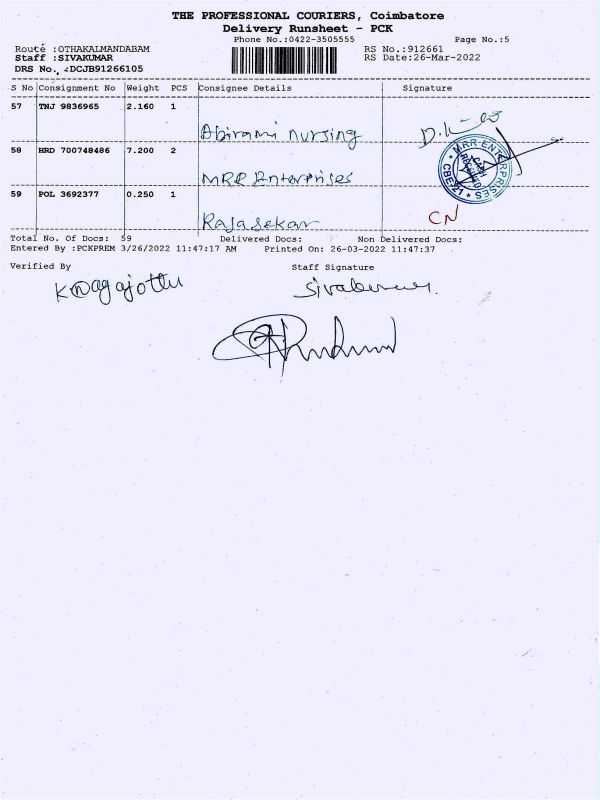 THE PROFESSIONAL COURIERS, Coimbatore
Delivery Runsheet - PCK
Phone No.:0422-3505555 Page No.:5
Route :OTHAKALMANDABAM RS No.:912661
Staff :SIVAKUMAR RS Date:26-Mar-2022
DRS No. :DCJB91266105
S No Consignment No Weight PCS Consignee Details Signature
57 TNJ 9836965 2.160 1
Abirami nursing
58 HRD 700748486 7.200 2
MRR Enterprises
MRR ENTERPRISES
59 POL 3692377 0.250 1
Rajasekar CN
Total No. Of Docs: 59 Delivered Docs: Non Delivered Docs:
Entered By :PCKPREM 3/26/2022 11:47:17 AM Printed On: 26-03-2022 11:47:37
Verified By Staff Signature